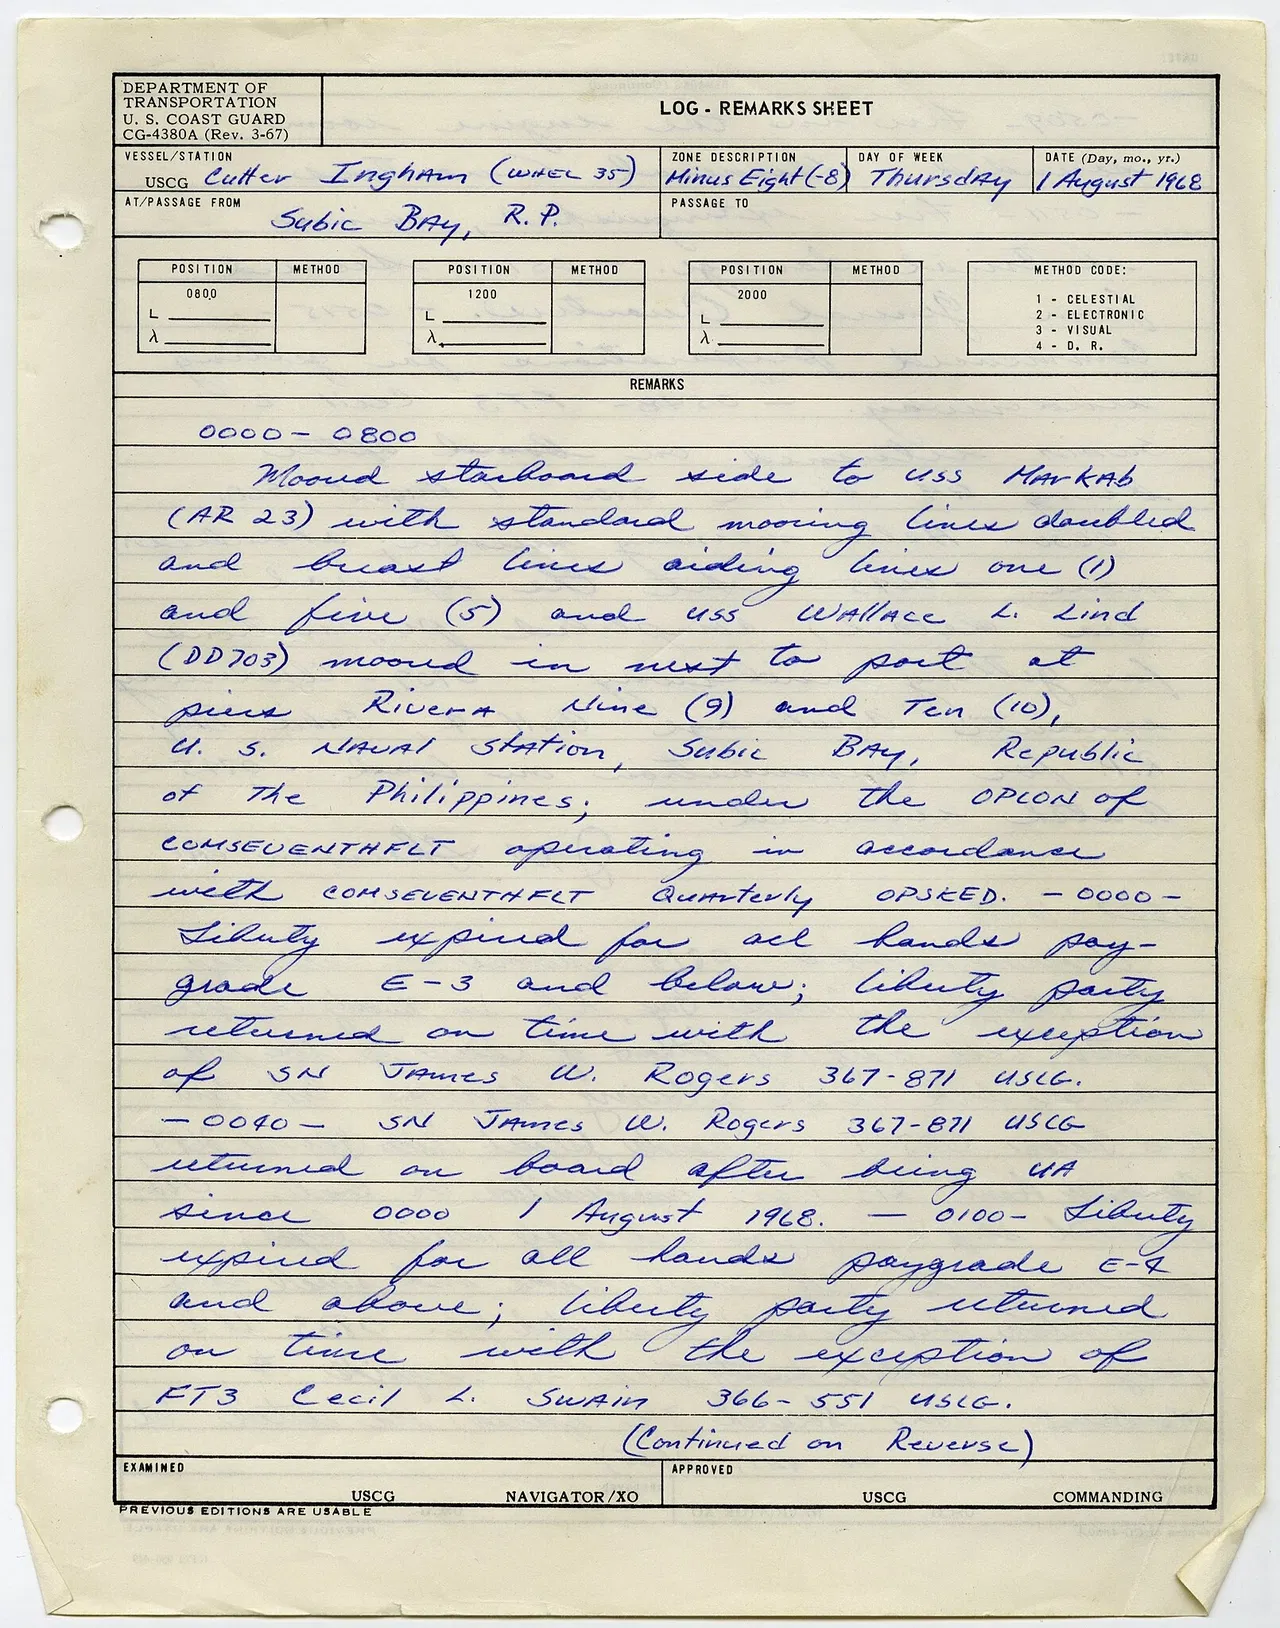 DEPARTMENT OF
TRANSPORTATION
U. S. COAST GUARD
CG-4380A (Rev. 3-67)
LOG - REMARKS SHEET
VESSEL/STATION
USCG Cutter Ingham (WHEC 35)
ZONE DESCRIPTION
Minus Eight (-8)
DAY OF WEEK
Thursday
DATE (Day, mo., yr.)
1 August 1968
AT/PASSAGE FROM
Subic Bay, R.P.
PASSAGE TO
POSITION METHOD
0800
L
λ
POSITION METHOD
1200
L
λ
POSITION METHOD
2000
L
λ
METHOD CODE:
1 - CELESTIAL
2 - ELECTRONIC
3 - VISUAL
4 - D. R.
REMARKS
0000 - 0800
Moored starboard side to USS Markab
(AR 23) with standard mooring lines doubled
and breast lines aiding lines one (1)
and five (5) and USS Wallace L. Lind
(DD703) moored in nest to port at
piers Rivera Nine (9) and Ten (10),
U. S. Naval Station, Subic Bay, Republic
of The Philippines; under the OPCON of
COMSEVENTHFLT operating in accordance
with COMSEVENTHFLT Quarterly OPSKED. - 0000 -
Liberty expired for all hands pay-
grade E-3 and below; liberty party
returned on time with the exception
of SN James W. Rogers 367-871 USCG.
- 0040 - SN James W. Rogers 367-871 USCG
returned on board after being UA
since 0000 1 August 1968. - 0100 - Liberty
expired for all hands paygrade E-4
and above; liberty party returned
on time with the exception of
FT3 Cecil L. Swain 366-551 USCG.
(Continued on Reverse)
EXAMINED
USCG NAVIGATOR/XO
APPROVED
USCG COMMANDING
PREVIOUS EDITIONS ARE USABLE